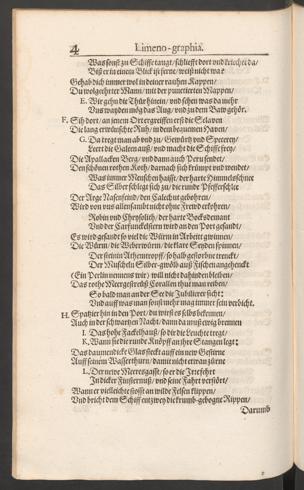 4 Limeno-graphiâ.
Was sonst zu Schiffe taugt / schliefft dort und kriecht da /
Bist er in einem Blick ist ferne / weist nicht wa?
Gehab dich immer wol in deiner rauhen Kappen /
Du wolgeehrter Mann / mit der punctierten Mappen /
E. Wir gehn die Thür hinein / und sehen was da mehr
Uns wanden mög das Aug / und zu dem Baw gehör.
F. Sih dort / an jenem Ort ergreiffen erst die Sclaven
Die lang erwünschte Ruh / in dem bequemen Haven /
G. Da tregt man ab und zu / Gewürtz und Specerey /
Leert die Galeen auß / und macht die Schiffe frey /
Die Apallacken Berg / und dann auch Peru sendet /
Den schönen rothen Koth / darnach sich krümpt und wendet /
Was immer Menschen heisse / der harte Himmelschnee
Das Silber schlegt sich zu / die runde Pfefferschlee
Der
Wird von uns allensambt nicht ohne Frewd erkohren /
Robin und Chrysolith / der harte Bocksdemant
Und der Carfunckelstern wird an den Port gesandt /
Es wird gesandt so viel die Würm in Arbeit gwinnen /
Die Würm / die Weberwürm / die klare Seyden spinnen /
Der stein in Athemtropff / so halb gestorbne trenckt /
Der Muscheln Silber-gewölb auß Fischen angehenckt
(Ein Perlin nennens wir) will nicht dahinden bleiben /
Das rothe Meergesträß Corallen thut man reiben /
So bald man an der See die Jubilirer sicht:
Und auff was man sonst mehr mag immer sein verbicht.
H. Spatzier hin in den Port / du wirst es selbs bekennen /
Auch in der schwartzen Nacht / dann da muß ewig brennen
I. Das hohe Fackelhauß / so dir die Leuchte tregt /
K. Wann sie die runde Knöpff an ihre Stangen legt;
Das daumendicke Glas steckt auff ein new Gestirne
Auff seinem Wasserthurn / damit nicht etwan zürne
L. Der newe Meeresgast / so er die Irrefehrt
In dicker Finsternuß / und seine Fahrt verstört /
Wann er vielleichte stosst an wilde Felsen klippen /
Und bricht dem Schiff entzwey die krumb-gebogne Rippen /
Darumb